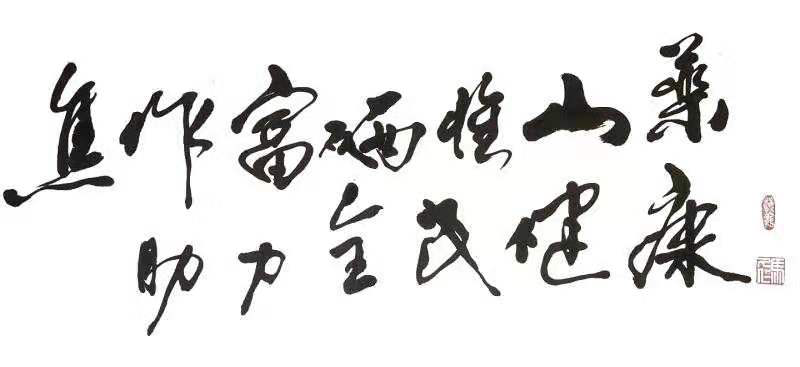 焦作富硒懷山藥
助力全民健康